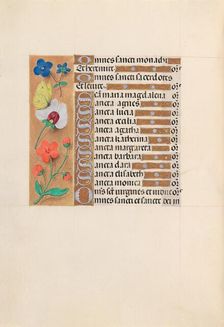 Omnes sancti monachi
Et heremite
Omnes sancti sacerdotes
Et levite
Sancta maria magdalena or
Sancta agnes or
Sancta lucia or
Sancta cecilia or
Sancta agatha or
Sancta katherina or
Sancta margareta or
Sancta barbara or
Sancta clara or
Sancta elisabeth or
Sancta monica or
Omnes sancte virgines et vidue or
Omnes sancti et sancte dei in